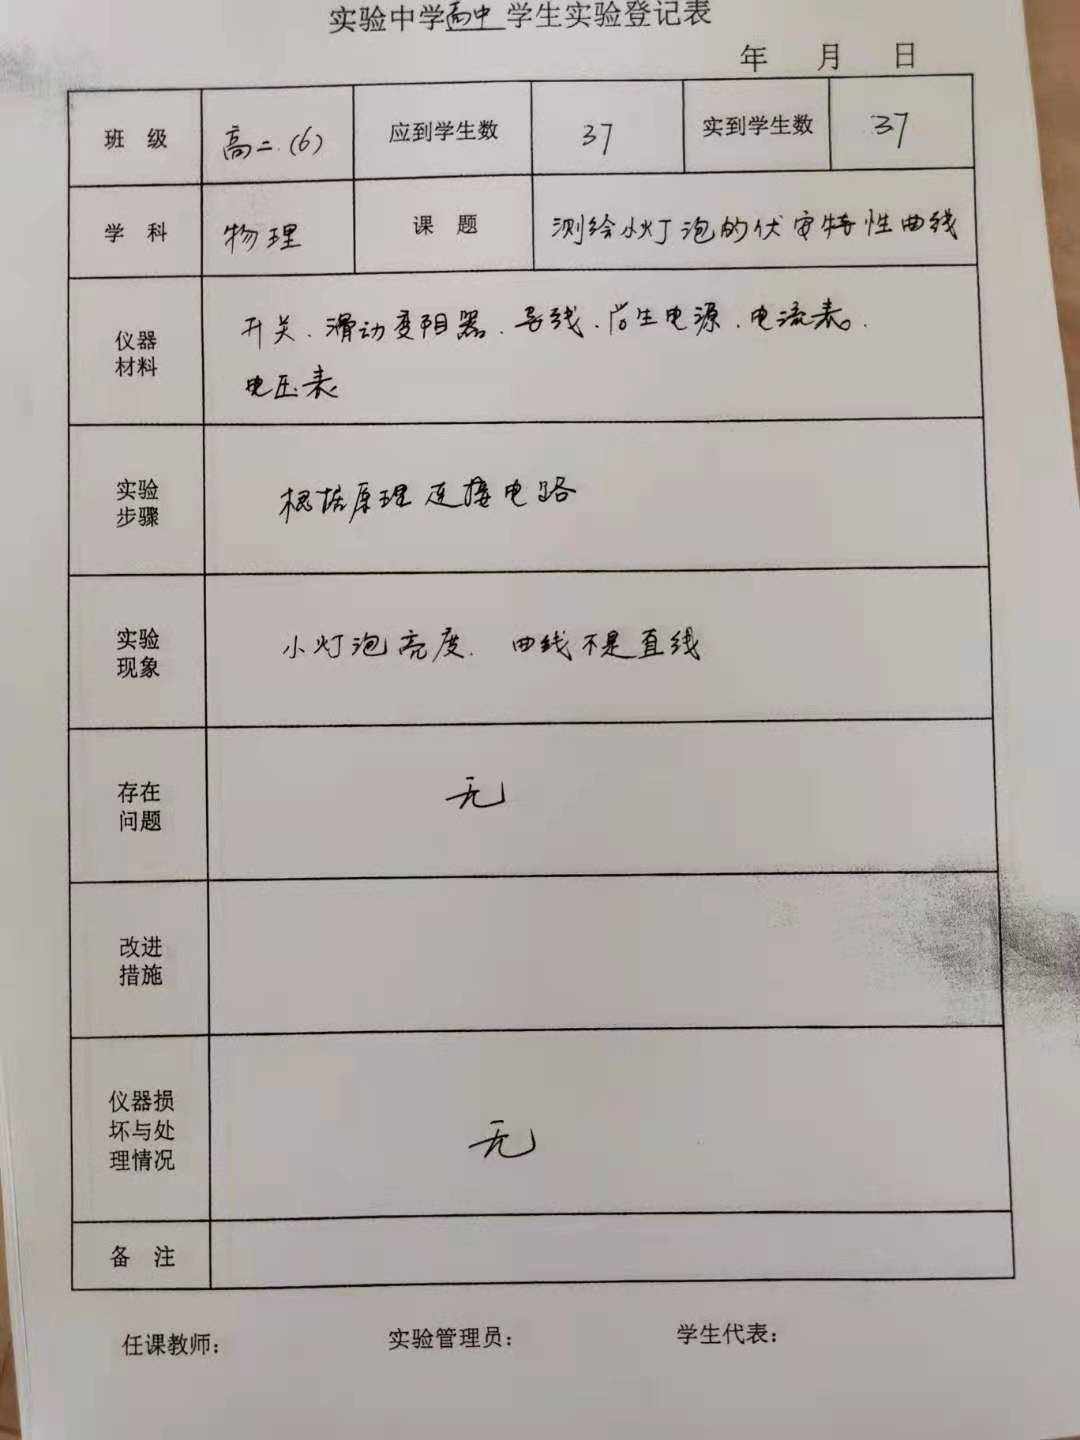 实验中学高中学生实验登记表
年 月 日
班 级 高二.(6) 应到学生数 37 实到学生数 37
学 科 物理 课 题 测绘小灯泡的伏安特性曲线
仪器
材料
开关、滑动变阻器、导线、学生电源、电流表、
电压表
实验
步骤
根据原理连接电路
实验
现象
小灯泡亮度. 曲线不是直线
存在
问题
无
改进
措施
仪器损
坏与处
理情况
无
备 注
任课教师: 实验管理员: 学生代表: